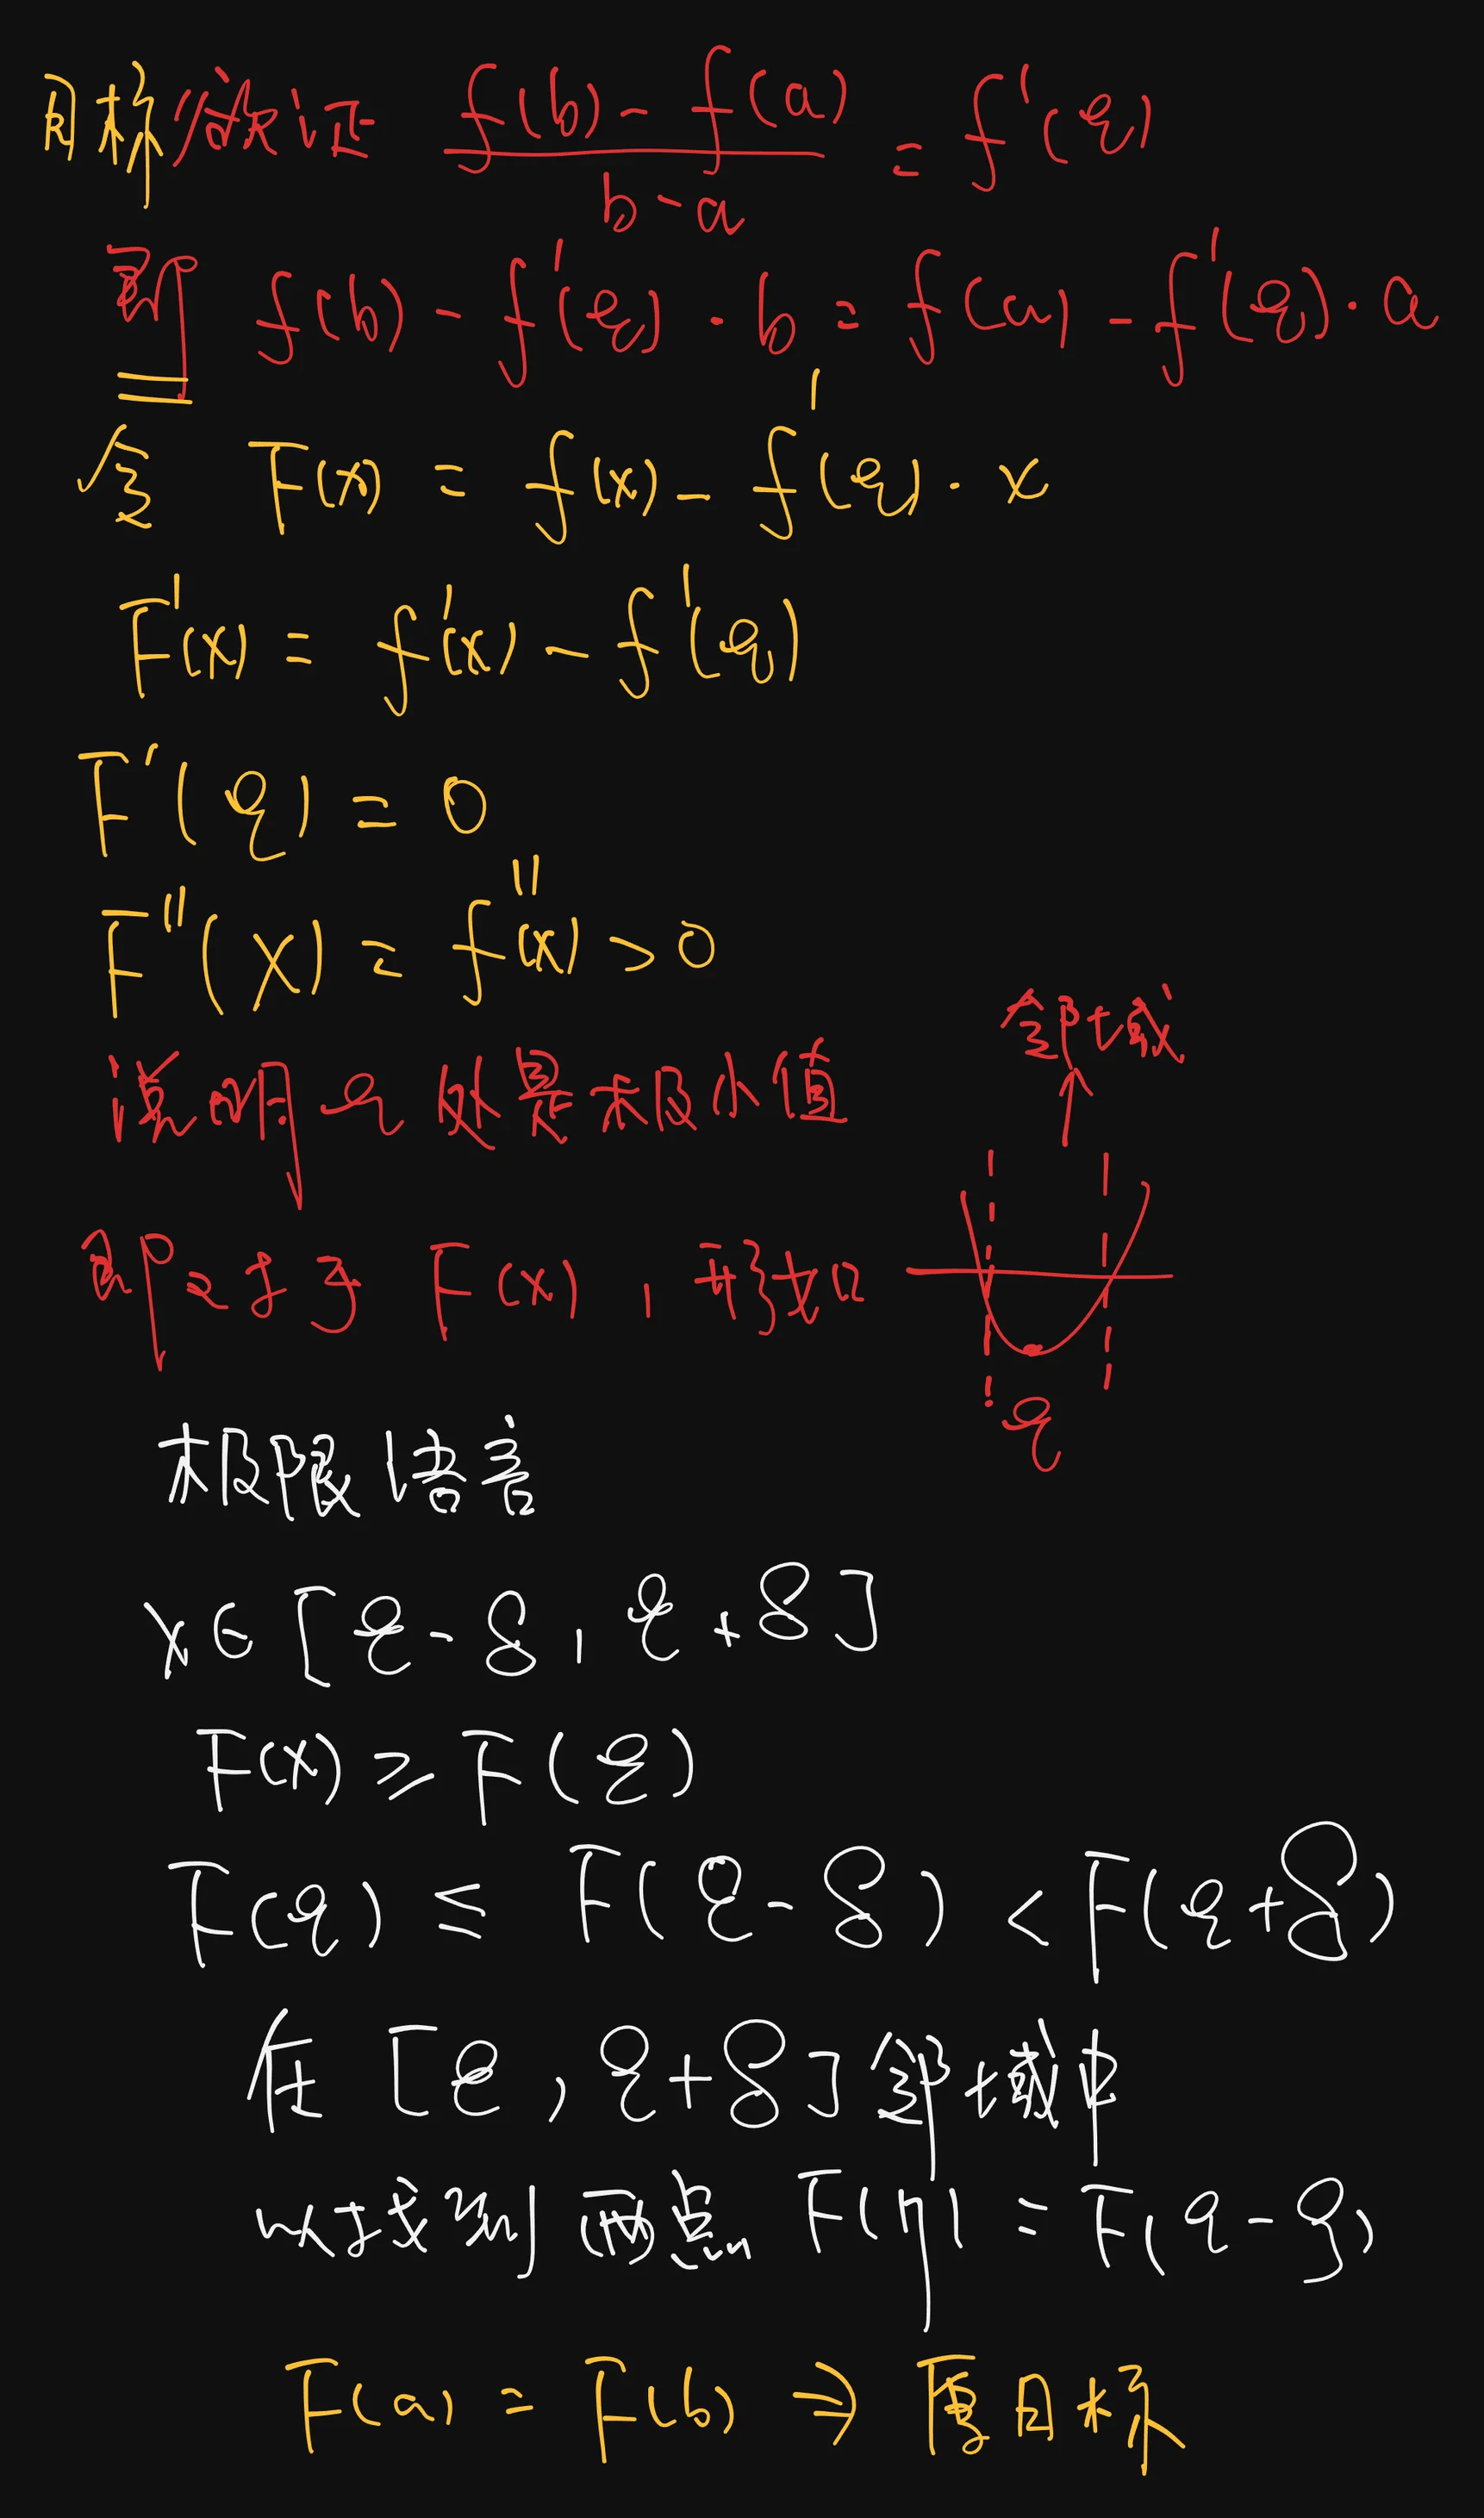 目标 欲证 \frac{f(b)-f(a)}{b-a} = f'(ξ)
即 f(b) - f'(ξ)·b = f(a) - f'(ξ)·a
√ 令 F(x) = f(x) - f'(ξ)·x
F'(x) = f'(x) - f'(ξ)
F'(ξ) = 0
F''(x) = f''(x) > 0
邻域
说明 ξ 处是极小值
即对于 F(x), 形如
ξ
极限语言
x∈[ξ-δ, ξ+δ]
F(x) ≥ F(ξ)
F(ξ) ≤ F(ξ-δ) < F(ξ+δ)
在 [ξ, ξ+δ] 邻域中
必找到两点 F(η) = F(ξ-δ)
F(a) = F(b) ⇒ 原目标